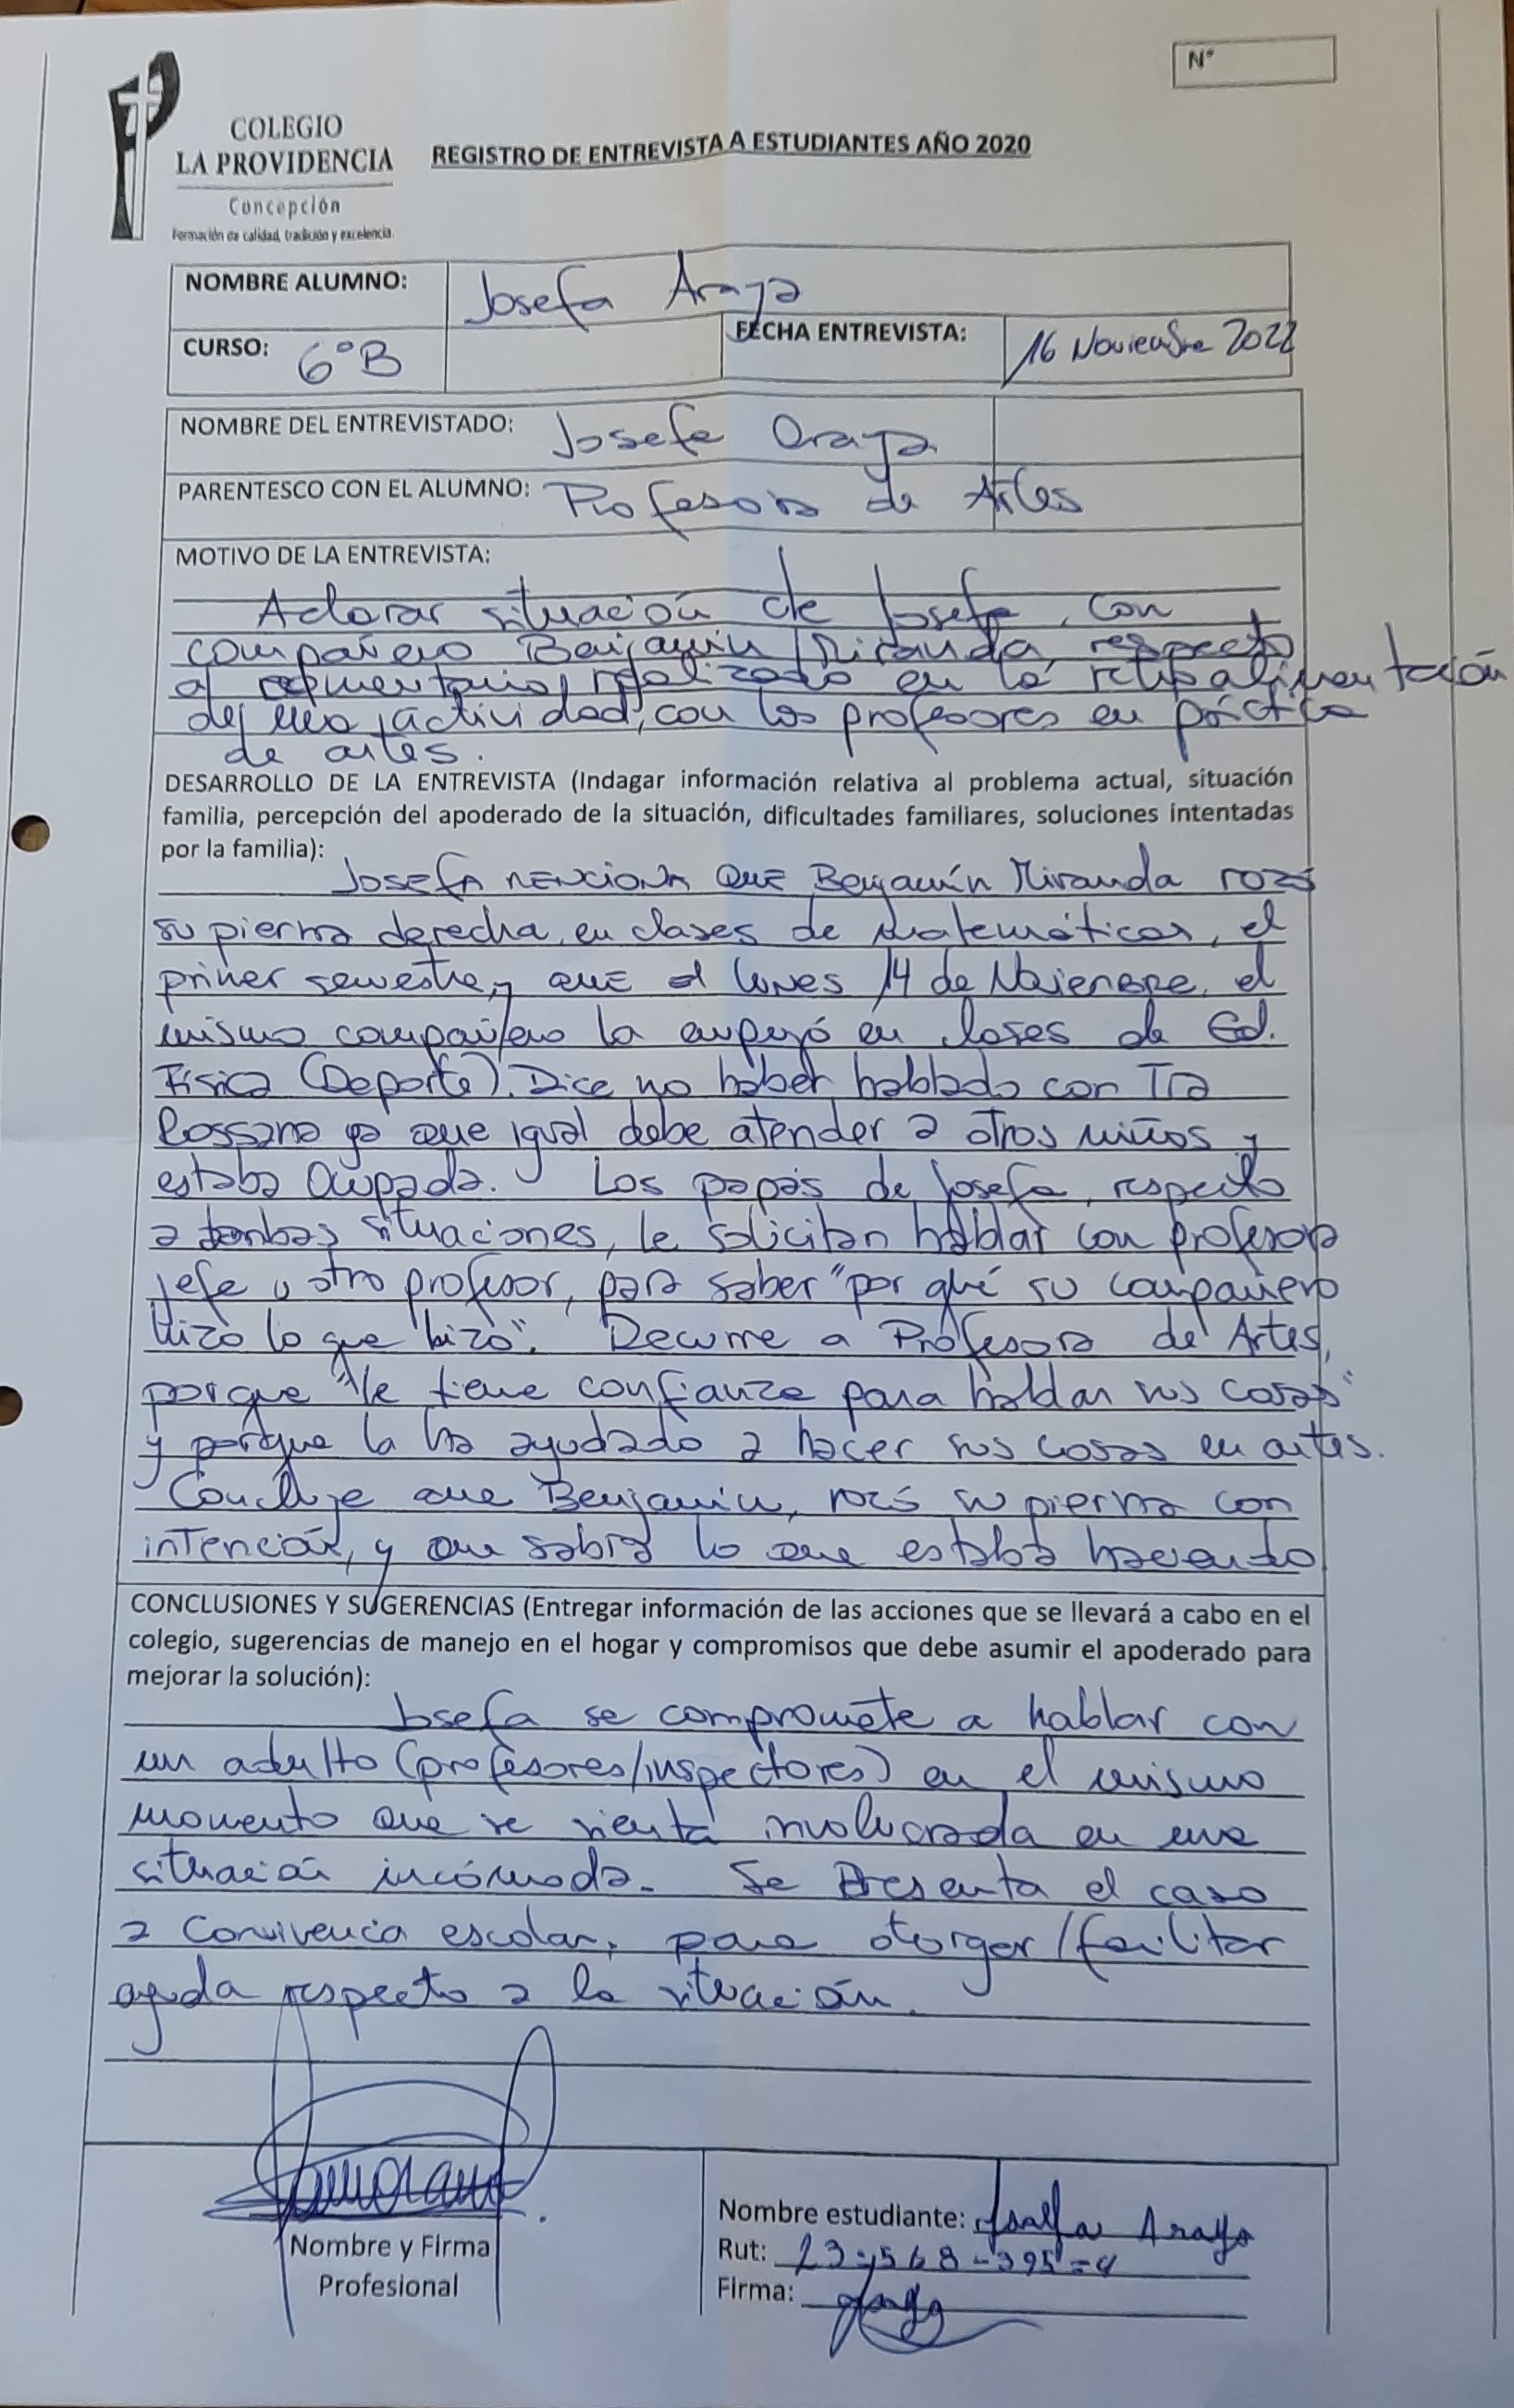 N°
COLEGIO
LA PROVIDENCIA
Concepción
Formación de calidad, tradición y excelencia.
REGISTRO DE ENTREVISTA A ESTUDIANTES AÑO 2020
NOMBRE ALUMNO: Josefa Araya
CURSO: 6°B FECHA ENTREVISTA: 16 Noviembre 2022
NOMBRE DEL ENTREVISTADO: Josefa Araya
PARENTESCO CON EL ALUMNO: Profesora de Artes
MOTIVO DE LA ENTREVISTA:
Aclarar situación de Josefa, con
compañero Benjamín Miranda, respecto
al comentario realizado en la retroalimentación
de una actividad, con los profesores en práctica
de artes.
DESARROLLO DE LA ENTREVISTA (Indagar información relativa al problema actual, situación
familia, percepción del apoderado de la situación, dificultades familiares, soluciones intentadas
por la familia):
Josefa menciona que Benjamín Miranda rozó
su pierna derecha, en clases de matemáticas, el
primer semestre, y que el lunes 14 de Noviembre, el
mismo compañero la empujó en clases de Ed.
Física (Deporte). Dice no haber hablado con Tía
Rossana ya que igual debe atender a otros niños y
estaba ocupada. Los papás de Josefa, respecto
a ambas situaciones, le solicitan hablar con profesora
jefe u otro profesor, para saber "por qué su compañero
hizo lo que hizo". Recurre a Profesora de Artes,
porque "le tiene confianza para hablar sus cosas"
y porque la ha ayudado a hacer sus cosas en artes.
Concluye que Benjamín, rozó su pierna con
intención, y que sabía lo que estaba haciendo
CONCLUSIONES Y SUGERENCIAS (Entregar información de las acciones que se llevará a cabo en el
colegio, sugerencias de manejo en el hogar y compromisos que debe asumir el apoderado para
mejorar la solución):
Josefa se compromete a hablar con
un adulto (profesores/inspectores) en el mismo
momento que se sienta involucrada en una
situación incómoda. Se Presenta el caso
a Convivencia escolar, para otorgar/facilitar
ayuda respecto a la situación.
Nombre y Firma
Profesional
Nombre estudiante: Josefa Araya
Rut: 23.568-395-4
Firma: